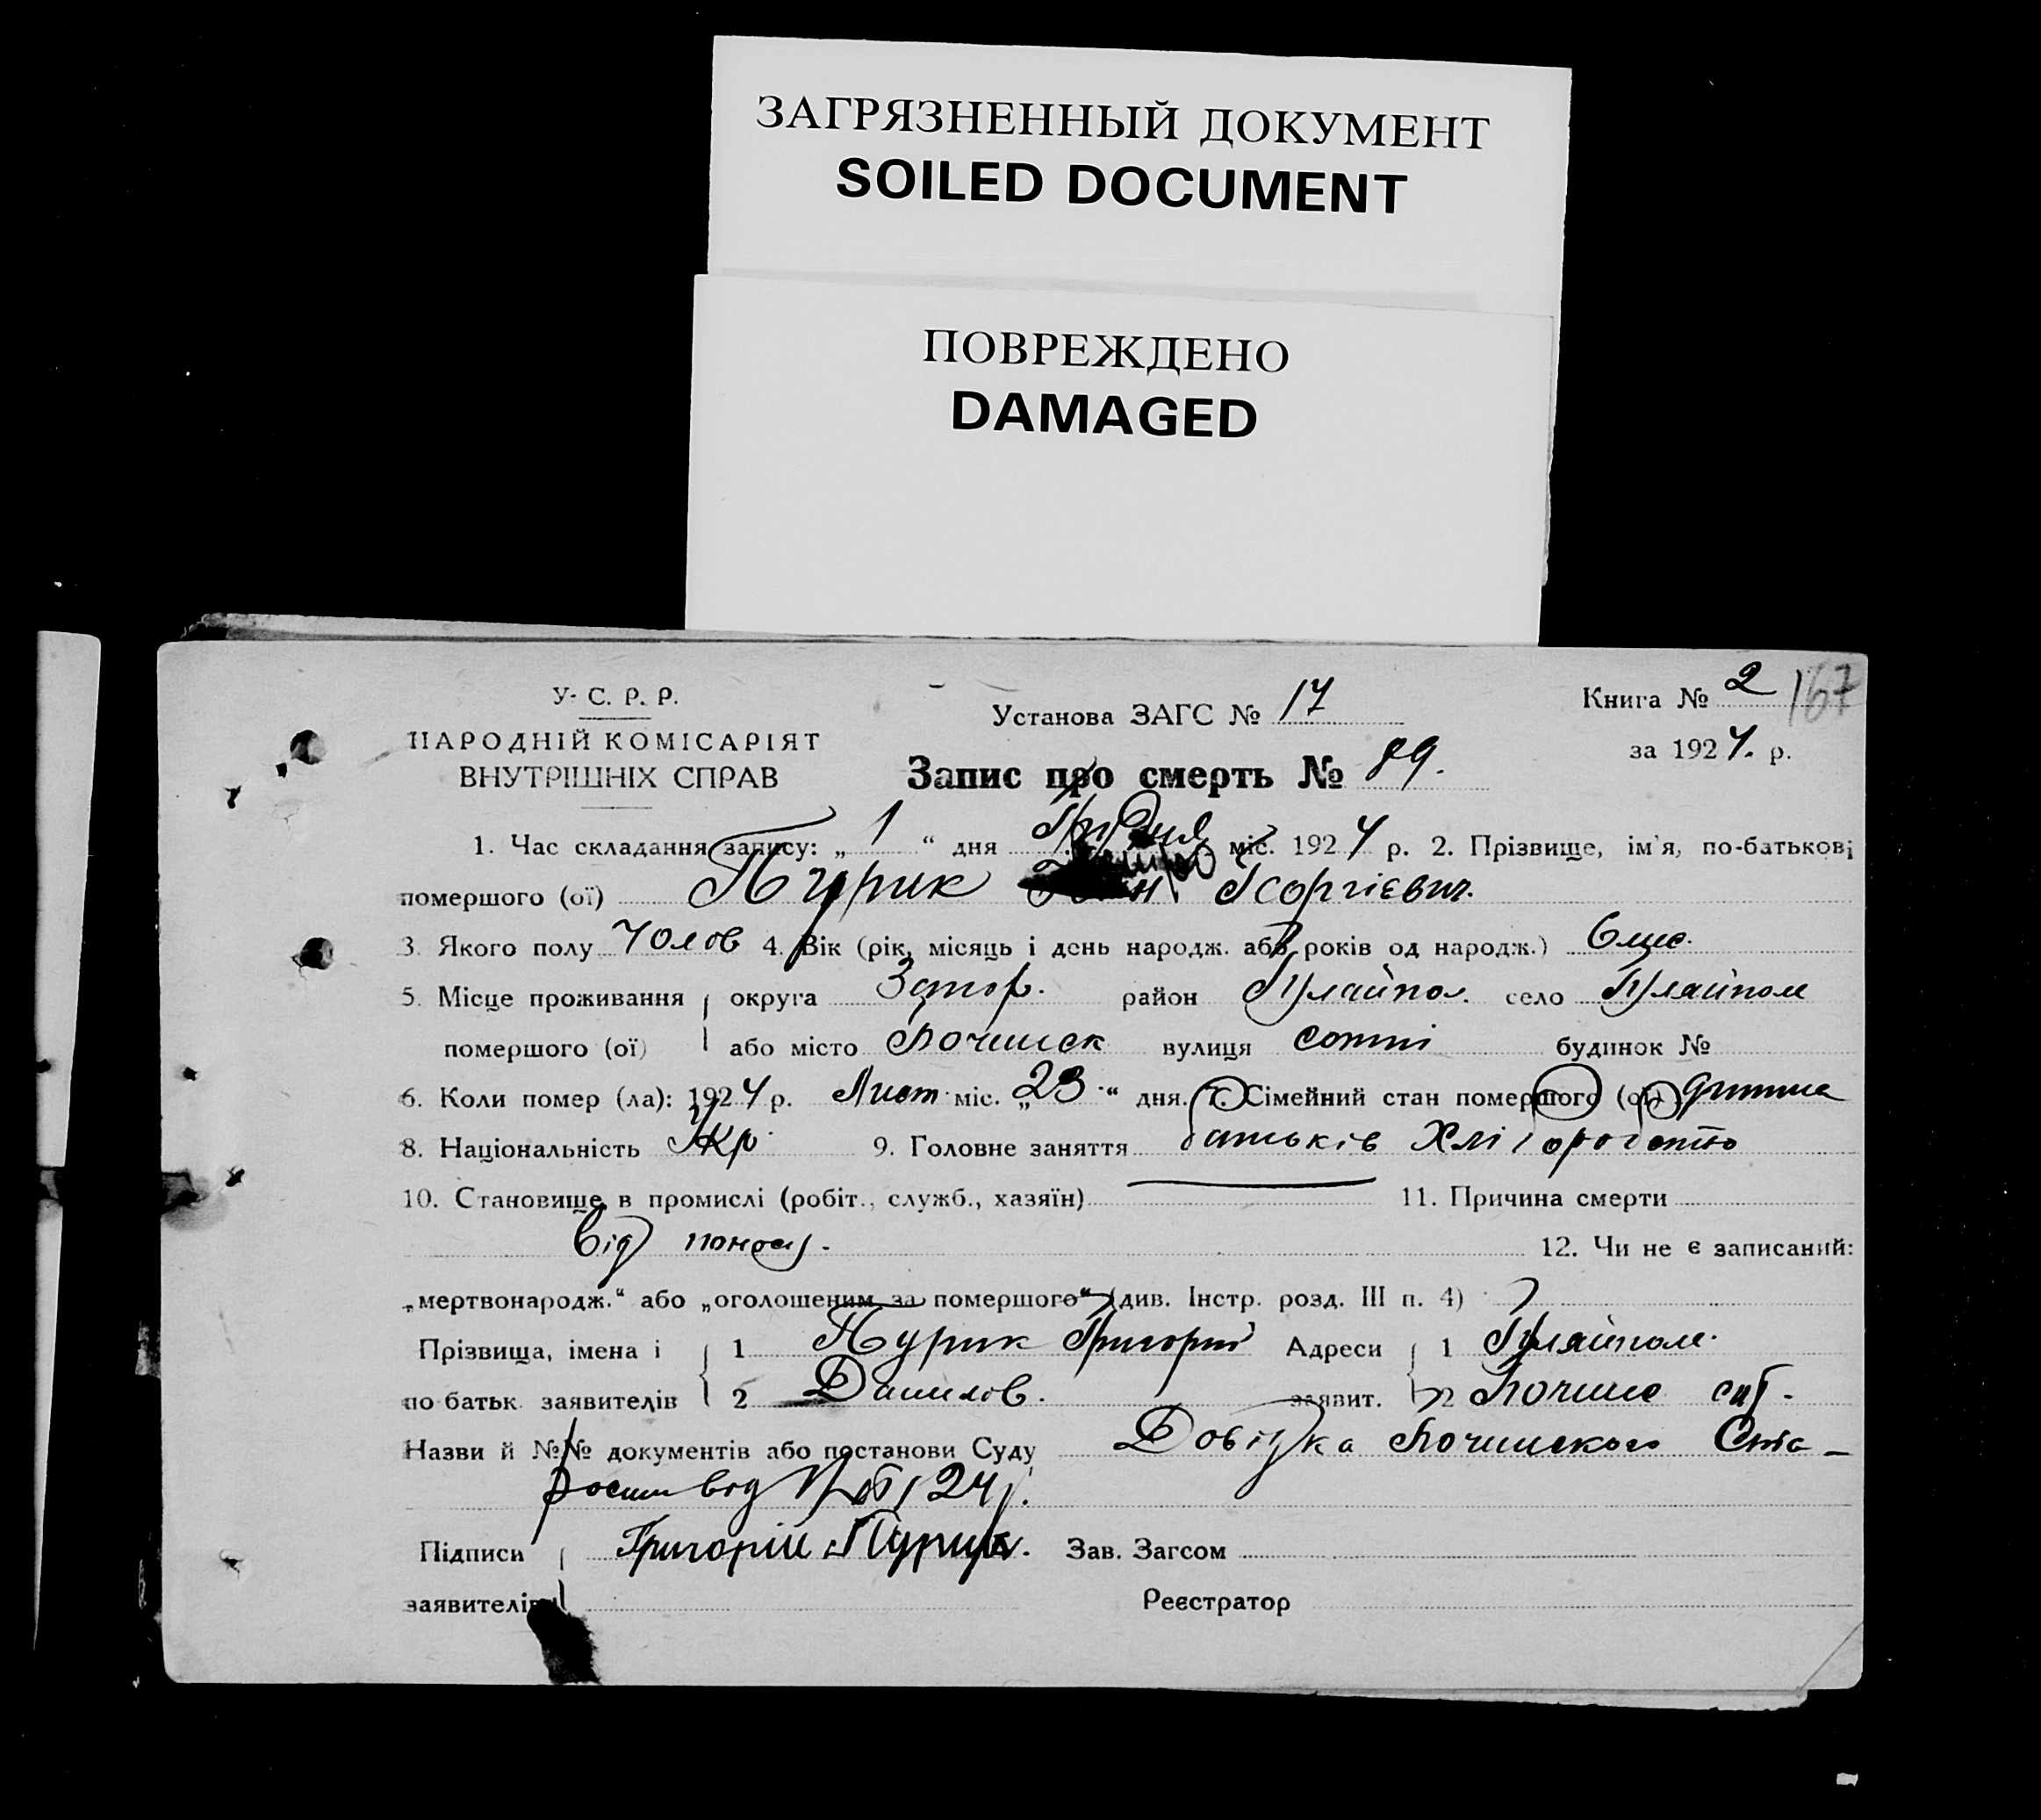 ЗАГРЯЗНЕННЫЙ ДОКУМЕНТ
SOILED DOCUMENT
ПОВРЕЖДЕНО
DAMAGED
У. С. Р. Р.
НАРОДНІЙ КОМІСАРІЯТ
ВНУТРІШНІХ СПРАВ
Установа ЗАГС № 17
Книга № 2 167
за 1924. р.
Запис про смерть № 89.
1. Час складання запису: „ 1 “ дня Грудня міс. 1924 р. 2. Прізвище, ім'я, по-батькові
помершого (ої) Пурик Георгієвич.
3. Якого полу Чолов 4. Вік (рік, місяць і день народж. або років од народж.) 6 міс.
5. Місце проживання округа Запор. район Гуляйпол. село Гуляйполе
помершого (ої) або місто вулиця сотні будинок №
6. Коли помер (ла): 1924 р. Лист. міс. „ 23 “ дня. 7. Сімейний стан помершого (ої) дитина
8. Національність Укр. 9. Головне заняття батьків Хліборобство
10. Становище в промислі (робіт., служб., хазяїн) 11. Причина смерти
від поносу.
12. Чи не є записаний:
„мертвонародж.“ або „оголошеним за помершого“ (див. Інстр. розд. III п. 4)
Прізвища, імена і 1 Пурик Григорій Адреси 1 Гуляйполе.
по батьк. заявителів 2 Данилов. заявит. 2
Назви й №№ документів або постанови Суду Довідка Ста-
рости від
Підписи Григорій Пурик. Зав. Загсом
заявителів Реєстратор